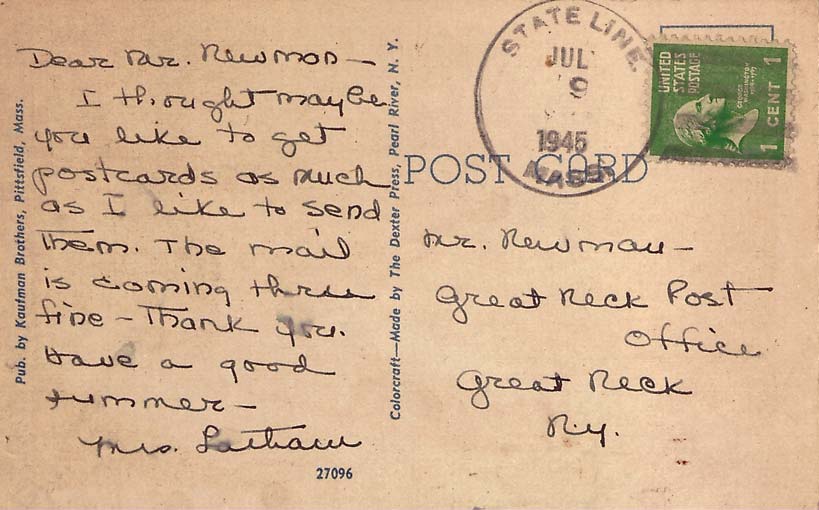 Dear Mr. Newman –
I thought maybe
you like to get
postcards as much
as I like to send
them. The mail
is coming thru
fine – Thank you.
Have a good
summer –
Mrs. Latham
Pub. by Kaufman Brothers, Pittsfield, Mass.
Colorcraft—Made by The Dexter Press, Pearl River, N. Y.
27096
POST CARD
STATE LINE.
JUL
9
1945
MASS.
UNITED
STATES
POSTAGE
GEORGE
WASHINGTON
1 CENT 1
Mr. Newman –
Great Neck Post
Office
Great Neck
N.y.